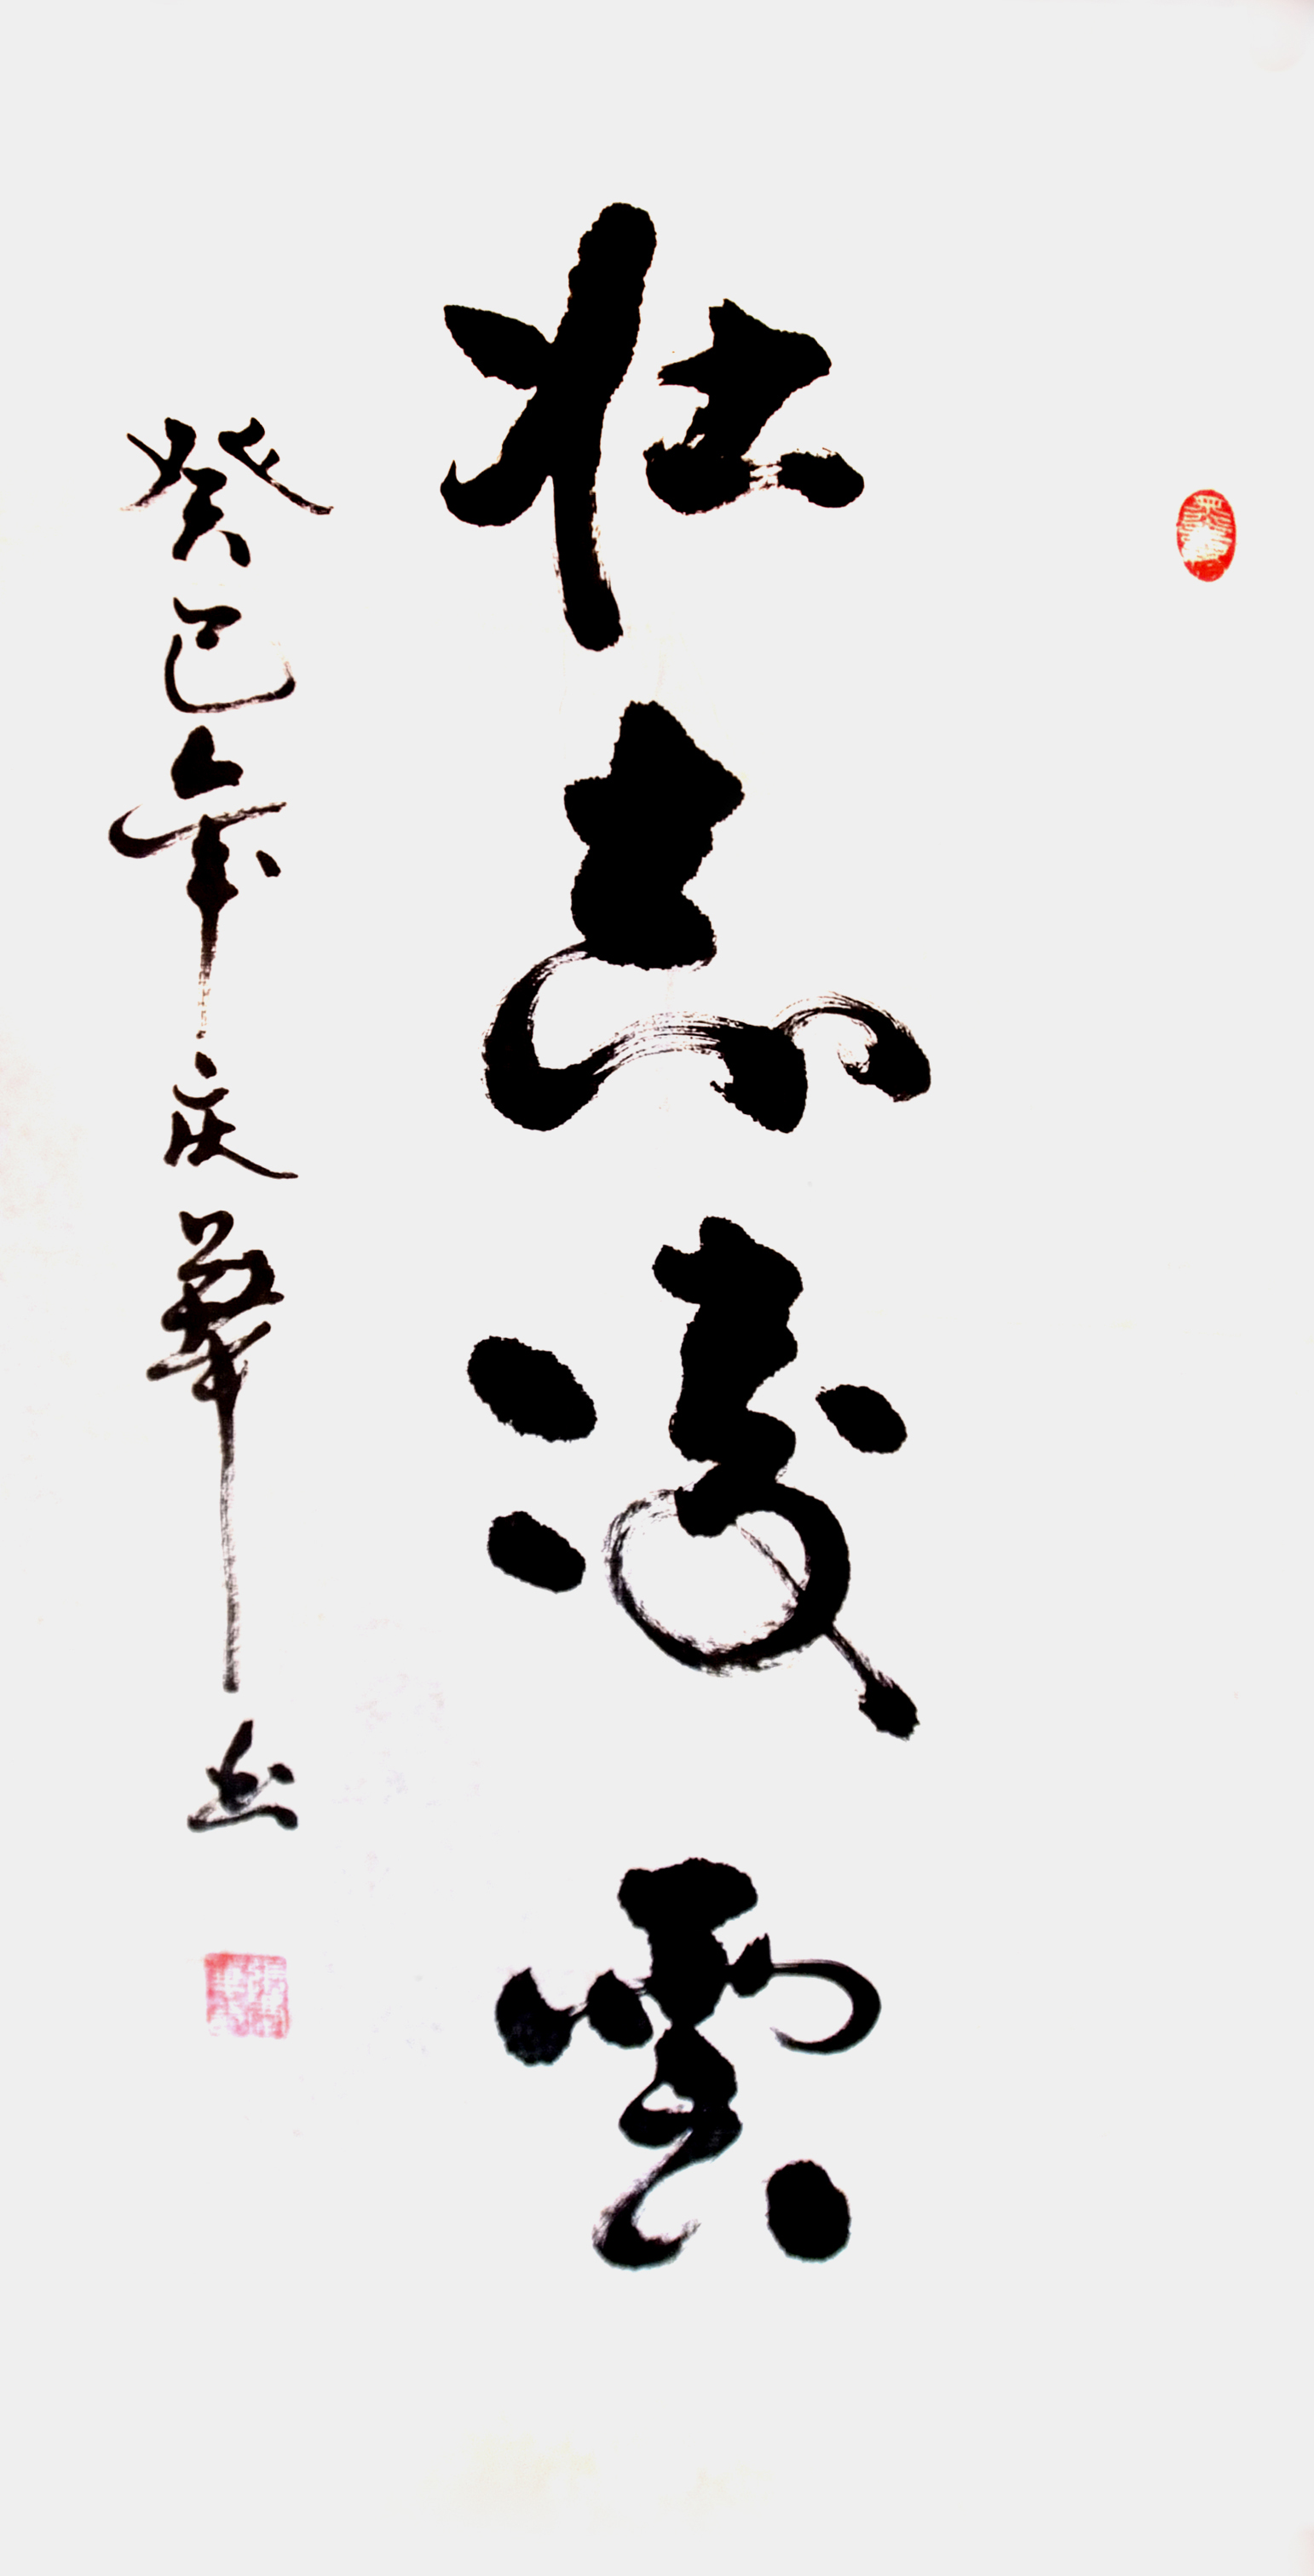 壮志凌雲
癸巳年庆華书